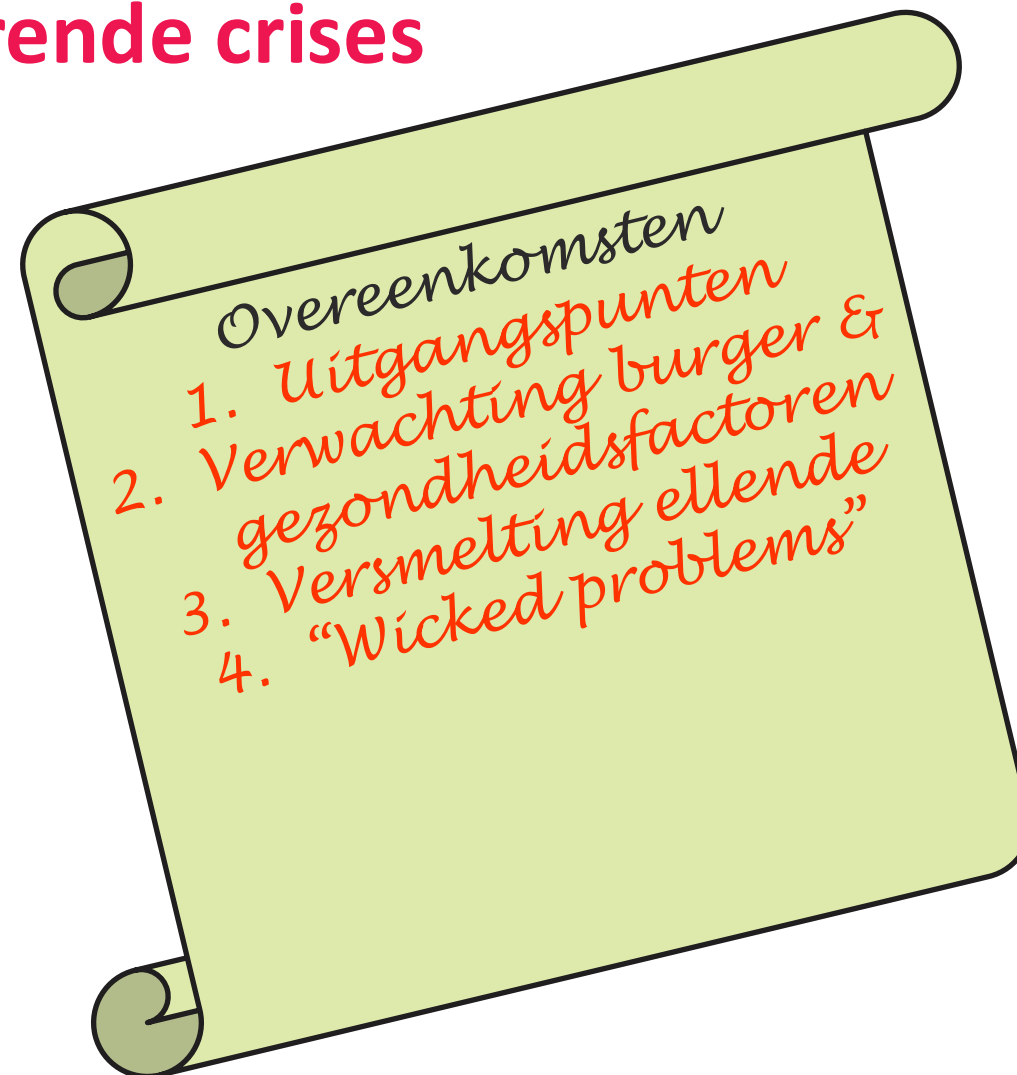 rende crises
Overeenkomsten
1. Uitgangspunten
2. Verwachting burger &
gezondheidsfactoren
3. Versmelting ellende
4. “Wicked problems”